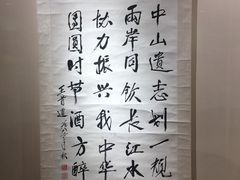 中山遗志划一规
两岸同飲長江水
协力振兴我中华
团圆时节酒方醉
王首道